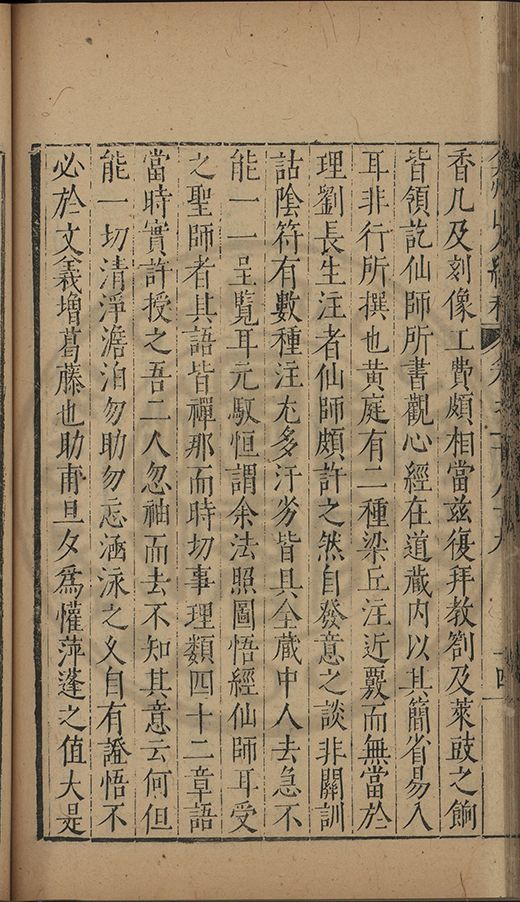 香几及刻像工費頗相當茲復拜教劄及萊豉之餉
皆領訖仙師所書觀心經在道藏内以其簡省易入
耳非行所撰也黄庭有二種梁丘注近覈而無當於
理劉長生注者仙師頗許之然自發意之談非關訓
詁陰符有數種注尤多汗劣皆具全藏中人去急不
能一一呈覽耳元馭恒謂余法照圖悟經仙師耳受
之聖師者其語皆禪那而時切事理類四十二章語
當時實許授之吾二人忽袖而去不知其意云何但
能一切清淨澹泊勿助勿忘涵泳之久自有證悟不
必於文義增葛藤也助甫旦夕為懽萍蓬之值大是